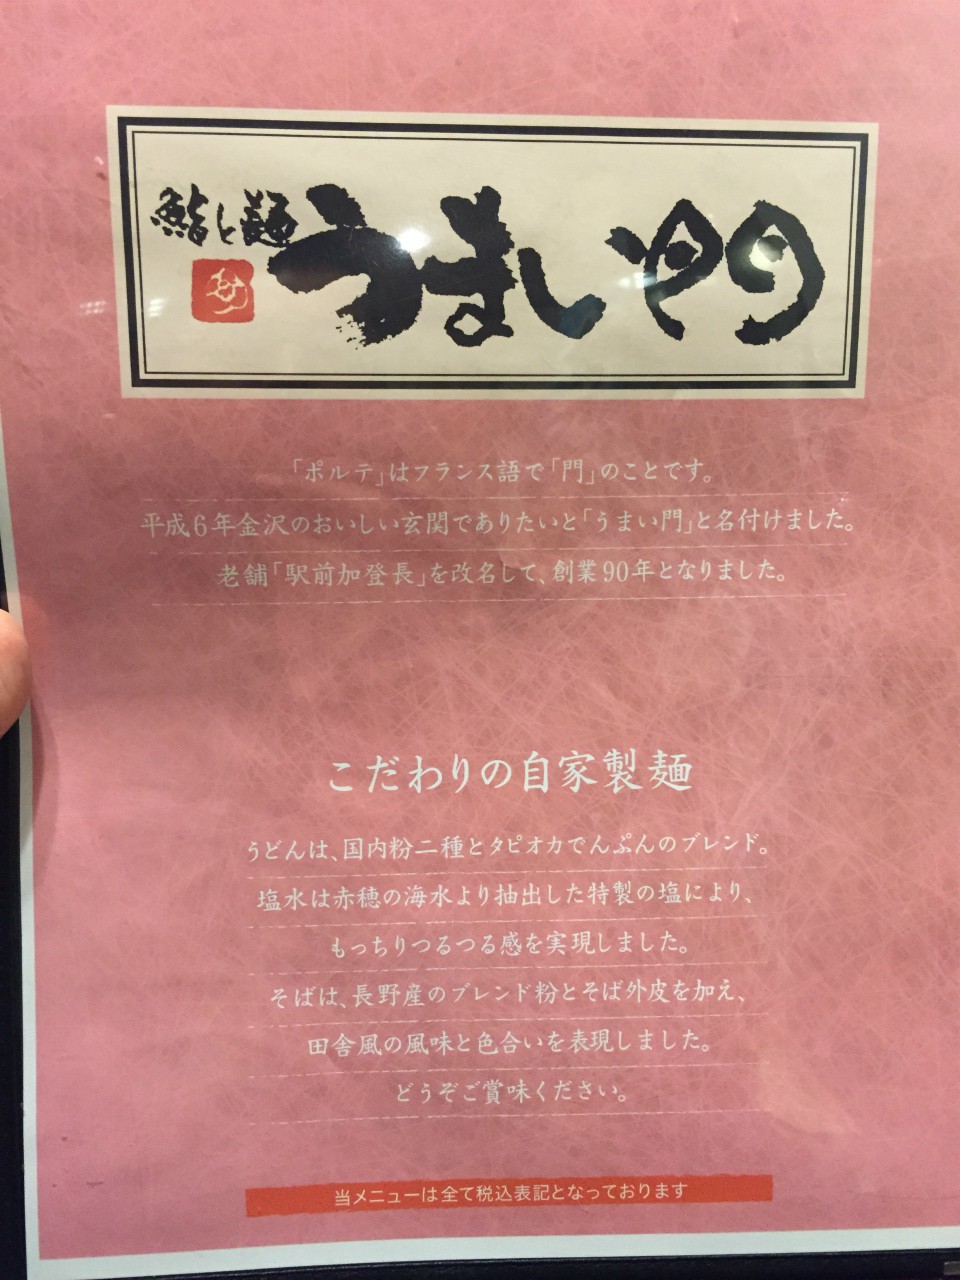 鮨と麺
うまい門
「ポルテ」はフランス語で「門」のことです。
平成6年金沢のおいしい玄関でありたいと「うまい門」と名付けました。
老舗「駅前加登長」を改名して、創業90年となりました。
こだわりの自家製麺
うどんは、国内粉二種とタピオカでんぷんのブレンド。
塩水は赤穂の海水より抽出した特製の塩により、
もっちりつるつる感を実現しました。
そばは、長野産のブレンド粉とそば外皮を加え、
田舎風の風味と色合いを表現しました。
どうぞご賞味ください。
当メニューは全て税込表記となっております